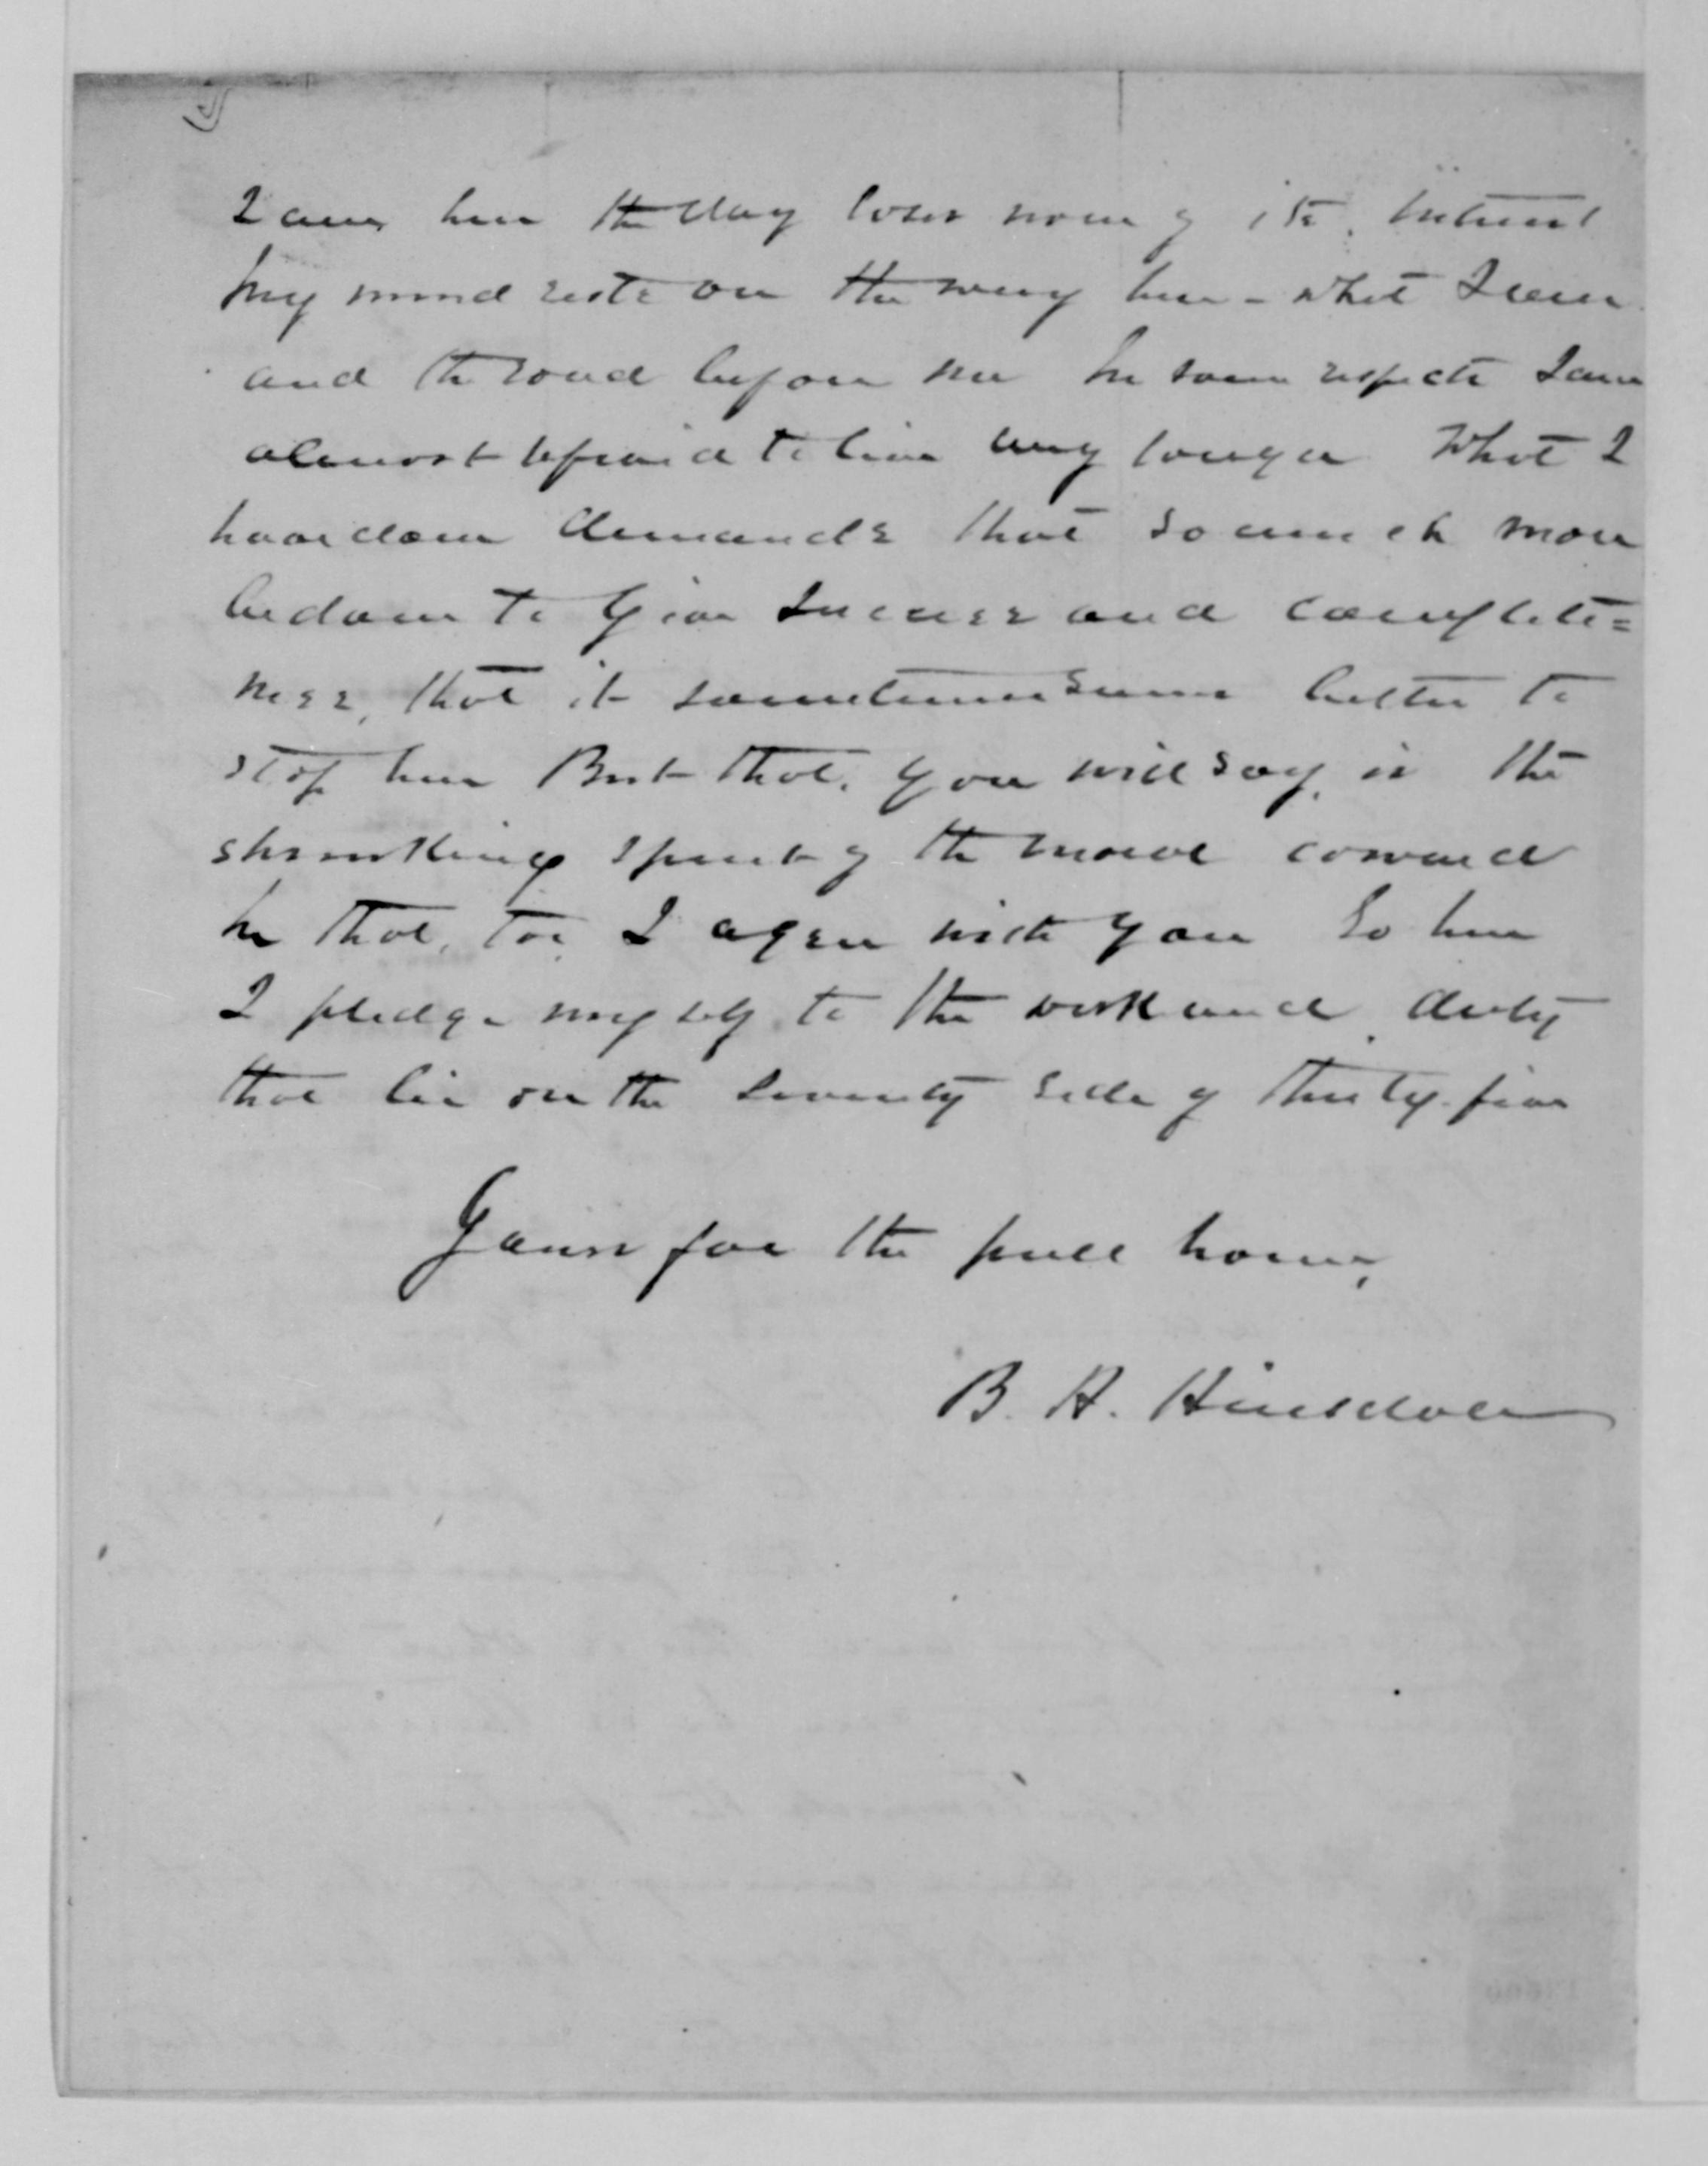 I am here the day loses none of its interest
My mind rests on the way here - what I am
and the road before me In some respects I am
almost afraid to live any longer What I
have done demands that so much more
be done to give success and complete=
ness, that it sometimes seems better to
stop here But that, you will say, is the
shrinking spirit of the moral coward
In that, too, I agree with you So here
I pledge myself to the work and duty
that lie on the seventy side of thirty-five
Yours for the pull home,
B. A. Hinsdale